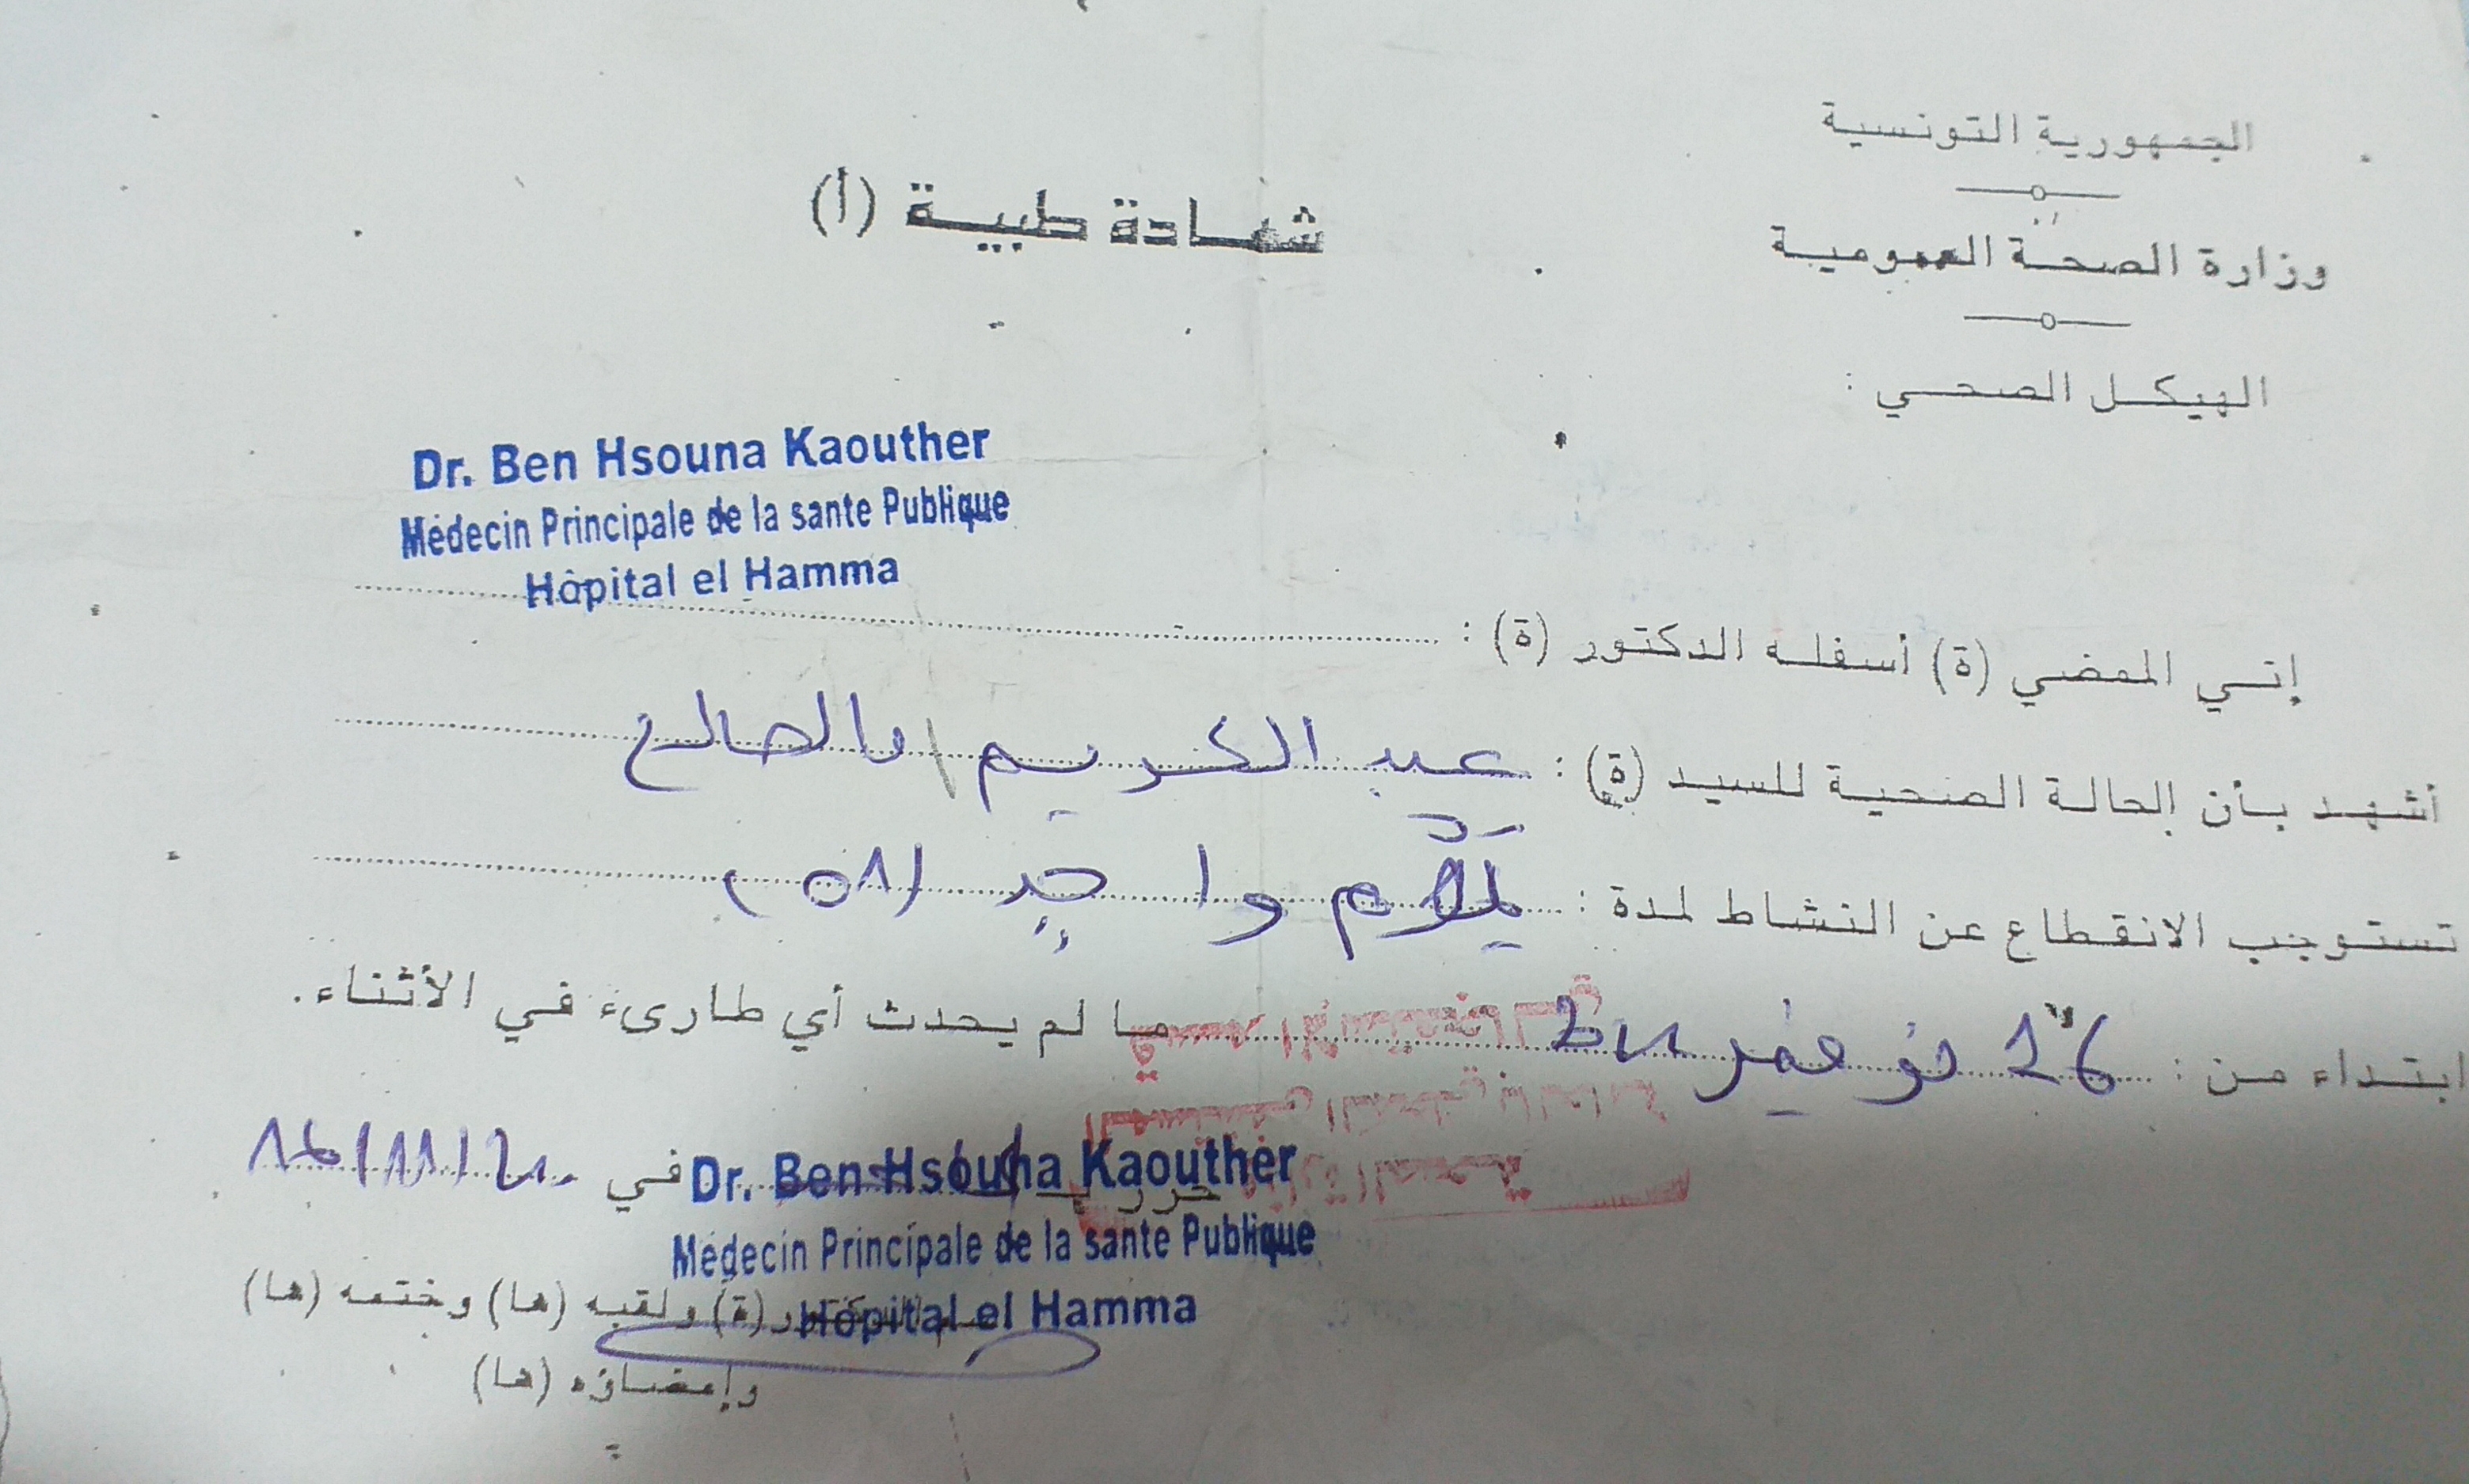 الجمهورية التونسية
وزارة الصحة العمومية
الهيكل الصحي :
شهادة طبية (أ)
Dr. Ben Hsouna Kaouther
Médecin Principale de la sante Publique
Hôpital el Hamma
إني الممضي (ة) أسفله الدكتور (ة) :
أشهد بأن الحالة الصحية للسيد (ة) : عبد الكريم والصالح
تستوجب الانقطاع عن النشاط لمدة : واحد
ابتداء من : 16 نوفمبر ما لم يحدث أي طارىء في الأثناء.
حرر في
Dr. Ben Hsouna Kaouther
Médecin Principale de la sante Publique
Hôpital el Hamma
الدكتور (ة) ولقبه (ها) وختمه (ها)
وإمضاؤه (ها)